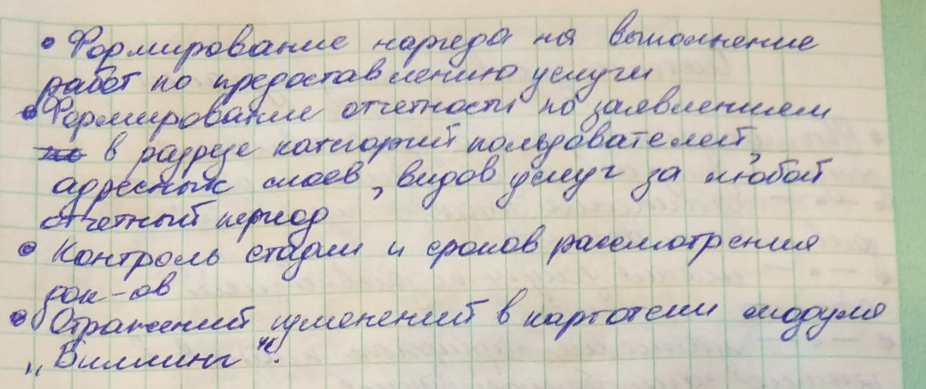 • Формирование наряда на выполнение
работ по предоставлению услуги
• Формирование отчетности по заявлением
в разрезе категорий пользователей,
адресных слоев, видов услуг за любой
отчетный период
• Контроль стадии и сроков рассмотрения
док-ов
• Отражений изменений в картотеки модуля
„Биллинг“.